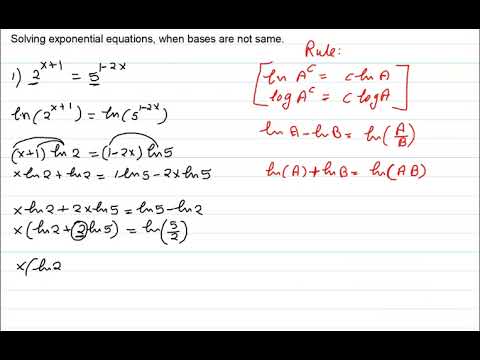 Solving exponential equations, when bases are not same.
Rule:
1) 2^(x+1) = 5^(1-2x)
ln A^c = c ln A
log A^c = c log A
ln(2^(x+1)) = ln(5^(1-2x))
ln A - ln B = ln(A/B)
(x+1) ln 2 = (1-2x) ln 5
x ln 2 + ln 2 = 1 ln 5 - 2x ln 5
ln(A) + ln B = ln(AB)
x ln 2 + 2x ln 5 = ln 5 - ln 2
x(ln 2 + 2 ln 5) = ln(5/2)
x(ln 2